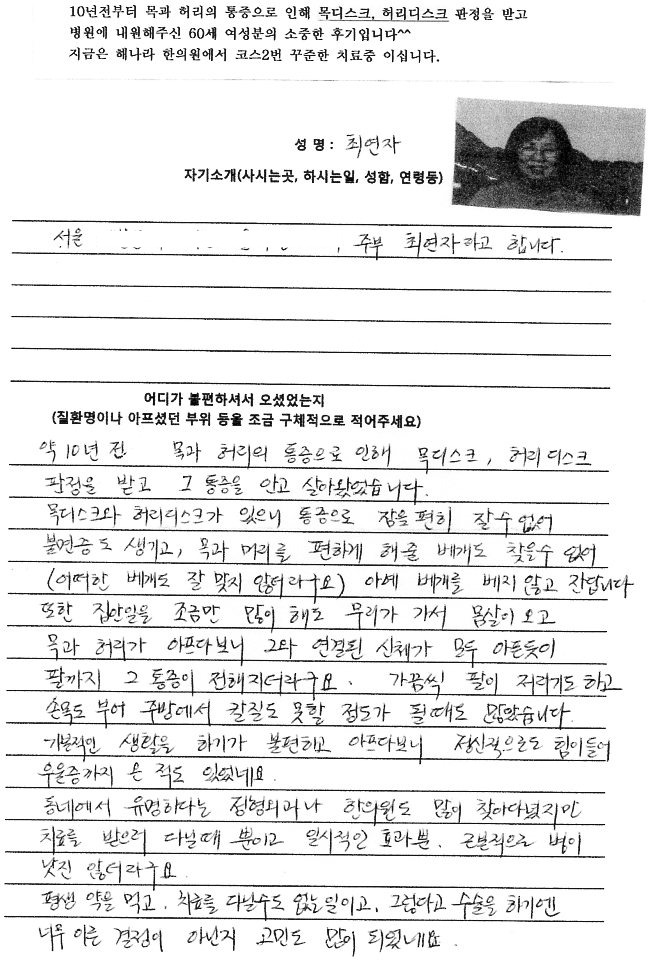 10년전부터 목과 허리의 통증으로 인해 목디스크, 허리디스크 판정을 받고
병원에 내원해주신 60세 여성분의 소중한 후기입니다^^
지금은 해나라 한의원에서 코스2번 꾸준한 치료중 이십니다.
성 명 : 최연자
자기소개(사시는곳, 하시는일, 성함, 연령등)
서울 , 주부 최연자라고 합니다.
어디가 불편하셔서 오셨었는지
(질환명이나 아프셨던 부위 등을 조금 구체적으로 적어주세요)
약 10년 전 목과 허리의 통증으로 인해 목디스크, 허리디스크
판정을 받고 그 통증을 안고 살아왔었습니다.
목디스크와 허리디스크가 있으니 통증으로 잠을 편히 잘 수 없어
불면증도 생기고, 목과 머리를 편하게 해줄 베개도 찾을수 없어
(어떠한 베개도 잘 맞지 않더라구요) 아예 베개를 베지 않고 잔답니다
또한 집안일을 조금만 많이 해도 무리가 가서 몸살이 오고
목과 허리가 아프다보니 그와 연결된 신체가 모두 아픈듯이
팔까지 그 통증이 전해지더라구요. 가끔씩 팔이 저리기도 하고
손목도 부어 주방에서 칼질도 못할 정도가 될때도 많았습니다.
기본적인 생활을 하기가 불편하고 아프다보니 정신적으로도 힘이들어
우울증까지 온 적도 있었네요.
동네에서 유명하다는 정형외과나 한의원도 많이 찾아다녔지만
치료를 받으러 다닐때 뿐이고 일시적인 효과뿐. 근본적으로 병이
낫진 않더라구요.
평생 약을 먹고, 치료를 다닐수도 없는일이고, 그렇다고 수술을 하기엔
너무 이른 결정이 아닌지 고민도 많이 되었네요.